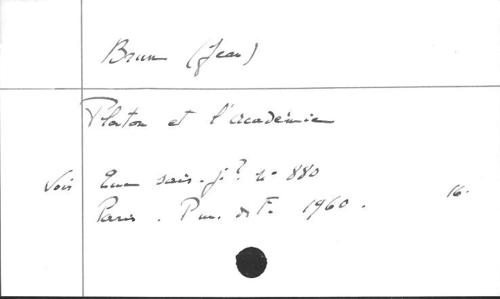 Brun (Jean)
Platon et l'académie
Voir Que sais-je? n° 880
Paris. P un. de F. 1960. 16.